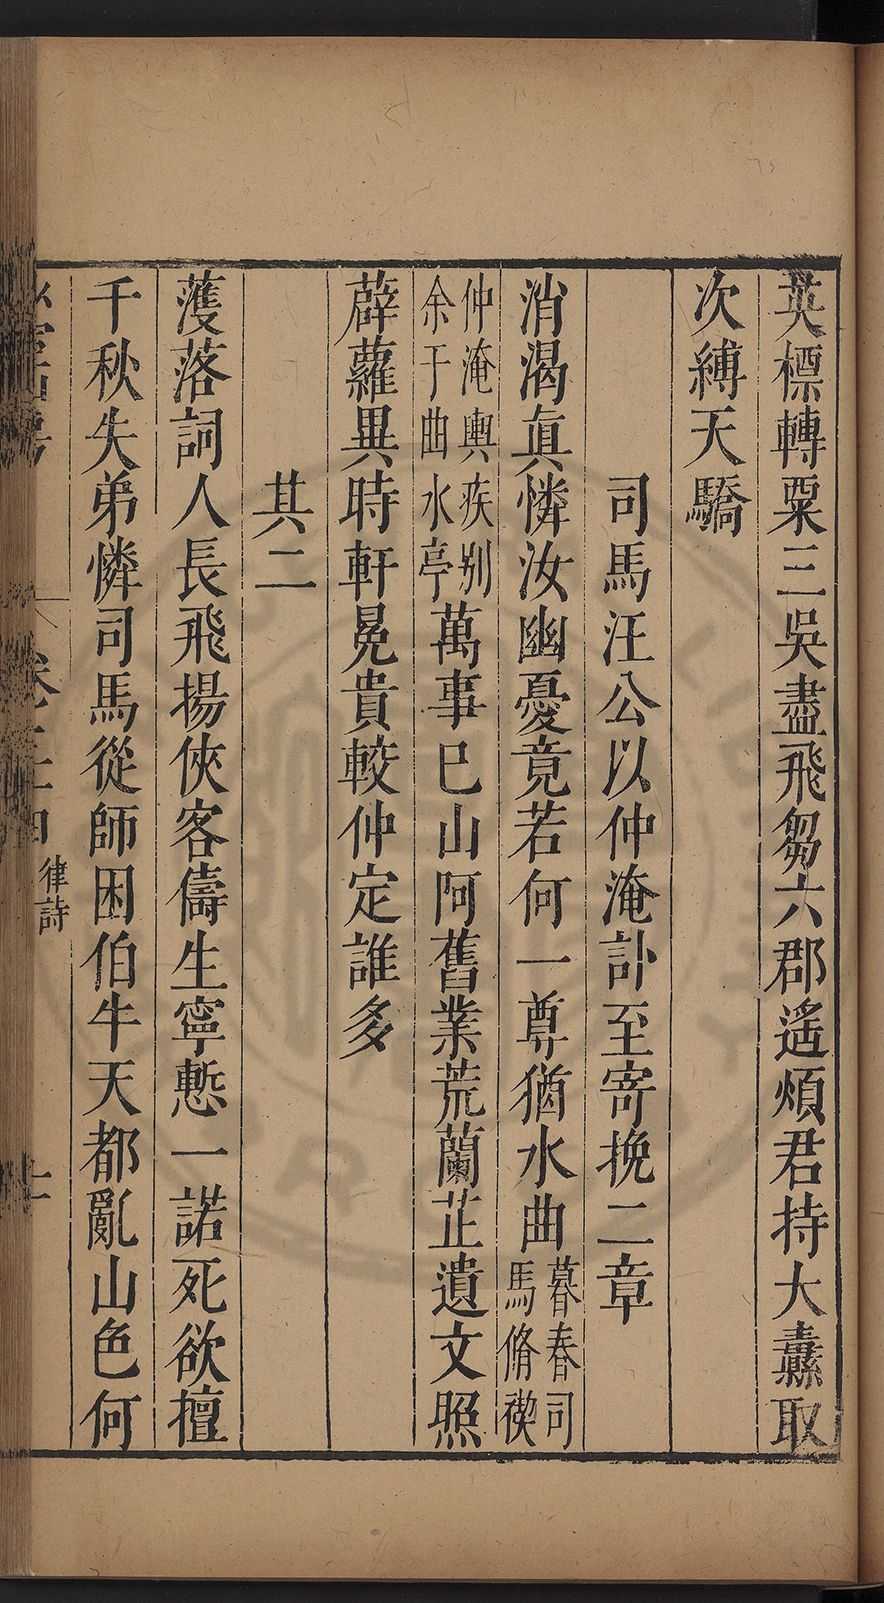 英標轉粟三吳盡飛芻六郡遙煩君持大纛取
次縛天驕
司馬汪公以仲淹訃至寄挽二章
消渴眞憐汝幽憂竟若何一尊猶水曲暮春司馬脩禊
仲淹輿疾别余于曲水亭萬事巳山阿舊業荒蘭芷遺文照
薜蘿異時軒冕貴較仲定誰多
其二
蒦落詞人長飛揚俠客儔生寧慙一諾死欲擅
千秋失弟憐司馬從師困伯牛天都亂山色何
律詩